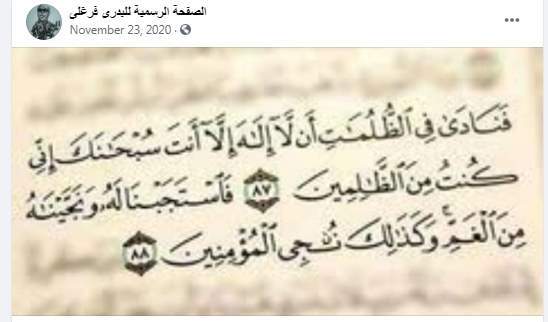 الصفحة الرسمية للبدرى فرغلى
November 23, 2020
فَنَادَىٰ فِي ٱلظُّلُمَٰتِ أَن لَّآ إِلَٰهَ إِلَّآ أَنتَ سُبْحَٰنَكَ إِنِّي
كُنتُ مِنَ ٱلظَّٰلِمِينَ ٨٧ فَٱسْتَجَبْنَا لَهُۥ وَنَجَّيْنَٰهُ
مِنَ ٱلْغَمِّ ۚ وَكَذَٰلِكَ نُۨجِي ٱلْمُؤْمِنِينَ ٨٨